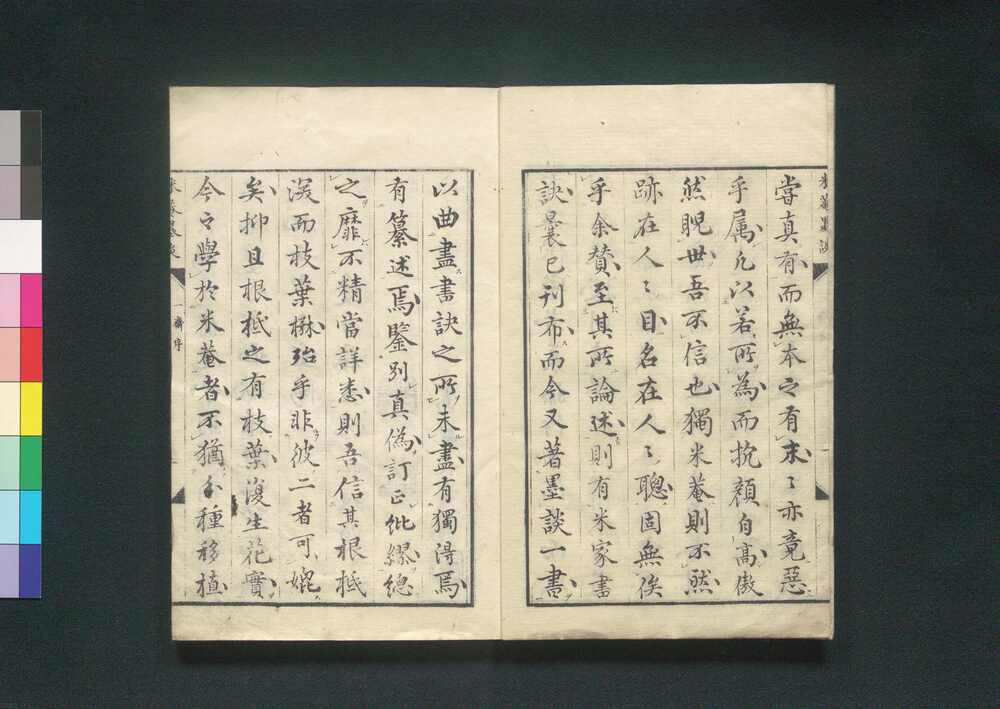 嘗真有而無本之有末〻亦竟惡
乎属凡以若所為而抗顔自高傲
然睨世吾不信也獨米菴則不然
跡在人〻目名在人〻聰固無俟
乎余賛至其所論述則有米家書
訣曩已刊布而今又著墨談一書
以曲盡書訣之所未盡有獨得焉
有纂述焉鑒別真偽訂正紕繆總
之靡不精當詳悉則吾信其根柢
深而枝葉楙殆乎非彼二者可媲
矣抑且根柢之有枝葉復生花實
今之學於米菴者不猶分種移植
米菴墨談
一齋序